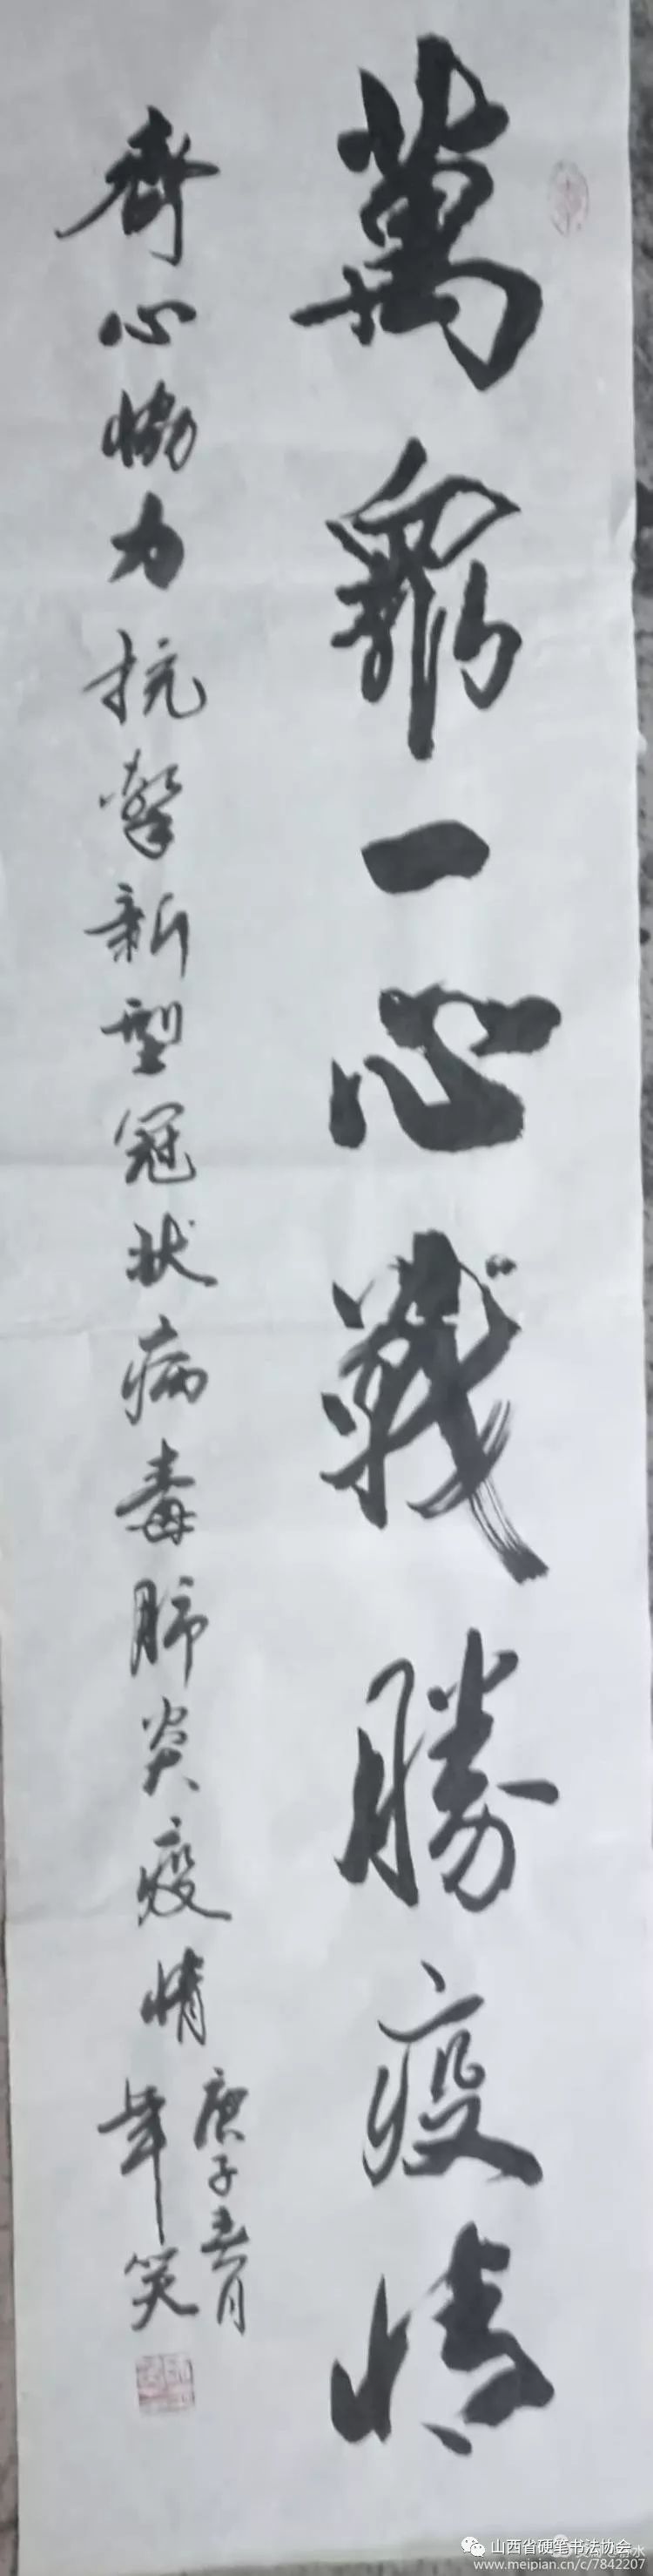 萬眾一心戰勝疫情
齊心協力抗擊新型冠狀病毒肺炎疫情
庚子春月
笑
山西省硬笔书法协会
www.meipian.cn/c/7842207